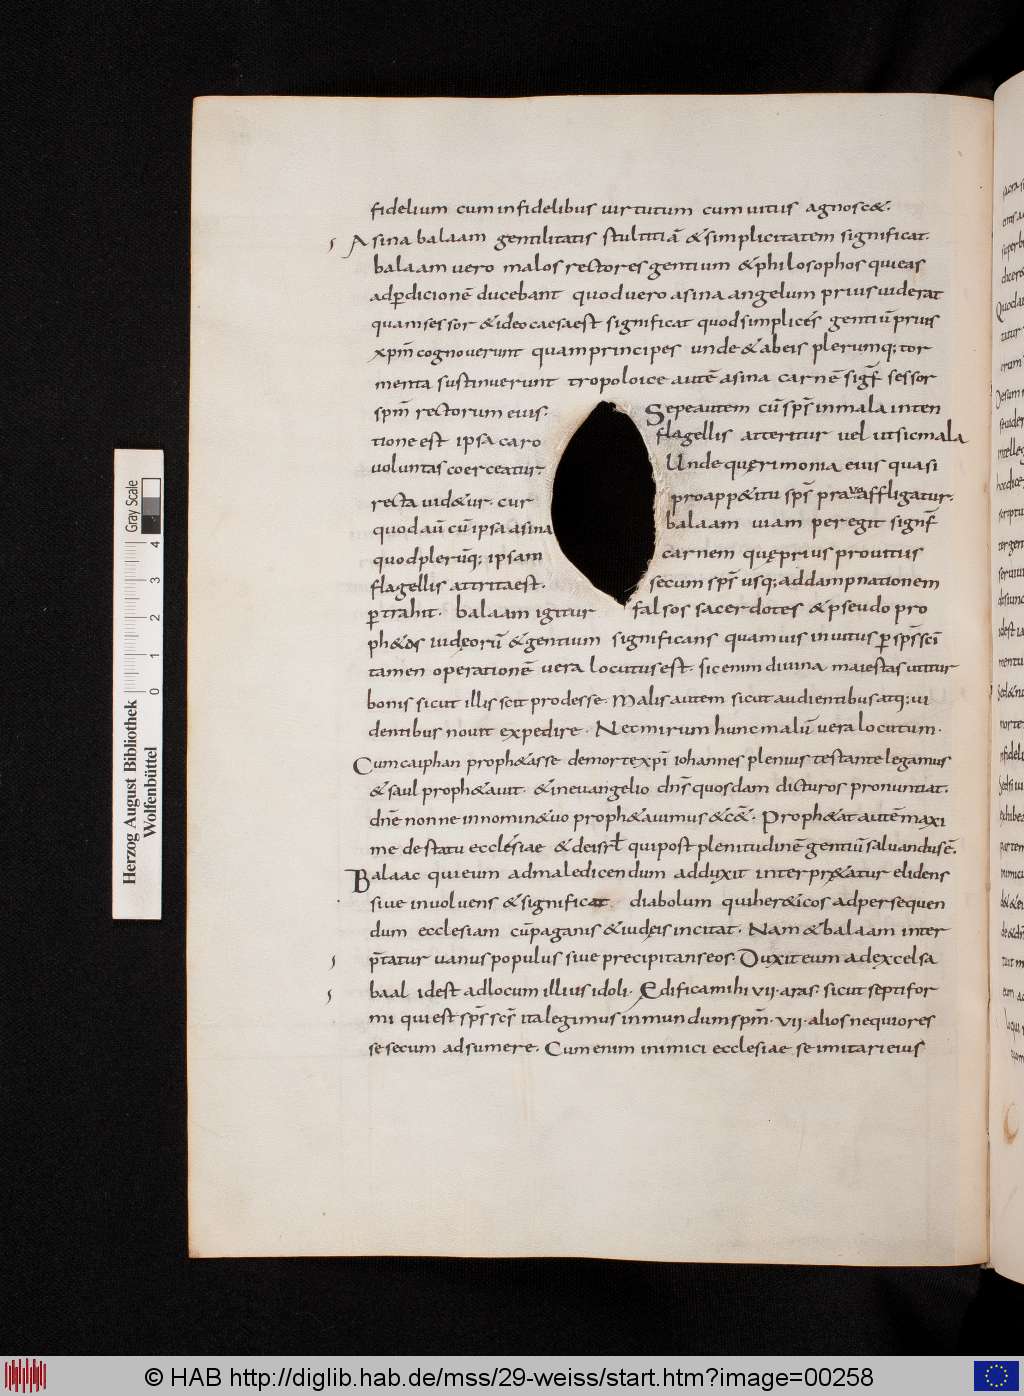 fidelium cum infidelibus uirtutum cum uitiis agnosc&.
Asina balaam gentilitatis stultitiā & simplicitatem significat.
balaam uero malos rectores gentium & philosophos qui eas
ad p̱dicionē ducebant quod uero asina angelum prius uiderat
quam sessor & ideo caesa est significat quod simplices gentiū prius
xp̄m cognouerunt quam principes unde & ab eis plerumq; tor
menta sustinuerunt tropoloice autē asina carnē sigf̄ sessor
sp̄m rectorum eius. Sepe autem cū sp̄s in mala inten
tione est ipsa caro flagellis atteritur uel ut sic mala
uoluntas coerceatur. Unde quęrimonia eius quasi
recta uid&ur. cur pro app&itu sp̄s praua affligatur.
quod aū cū ipsa asina balaam uiam peregit signf̄
quod plerūq; ipsam carnem quę prius pro uitiis
flagellis attrita est. secum sp̄s usq; ad dampnationem
p̱trahit. balaam igitur falsos sacerdotes & pseudo pro
ph&as iudęorū & gentium significans quamuis inuitus p̱ sp̄s sc̄i
tamen operationē uera locutus est. sic enim diuina maiestas utitur
bonis sicut illis scit prodesse. Malis autem sicut audientibus atq; ui
dentibus nouit expedire. Nec mirum hunc malū uera locutum.
Cum caiphan proph&asse de morte xp̄i iohannes plenius testante legamus
& saul proph&auit. & in euangelio dn̄s quosdam dicturos pronuntiat.
dn̄e nonne in nomin& uo proph&auimus & c&̄. Proph&at autē maxi
me de statu ecclesiae & de isrł qui post plenitudinē gentiū saluandus ē.
Balaac qui eum ad maledicendum adduxit interpr&atur elidens
siue inuoluens & significat diabolum qui her&icos ad persequen
dum ecclesiam cū paganis & iudęis incitat. Nam & balaam inter
pr̄tatur uanus populus siue precipitans eos. Duxit eum ad excelsa
baal id est ad locum illius idoli. Edifica mihi vii. aras. sicut septifor
mi qui est sp̄s sc̄s ita legimus inmundum sp̄m. vii. alios nequiores
se secum adsumere. Cum enim inimici ecclesiae se imitari eius
Herzog August Bibliothek
Wolfenbüttel
0 1 2 3 4
Gray Scale
© HAB http://diglib.hab.de/mss/29-weiss/start.htm?image=00258